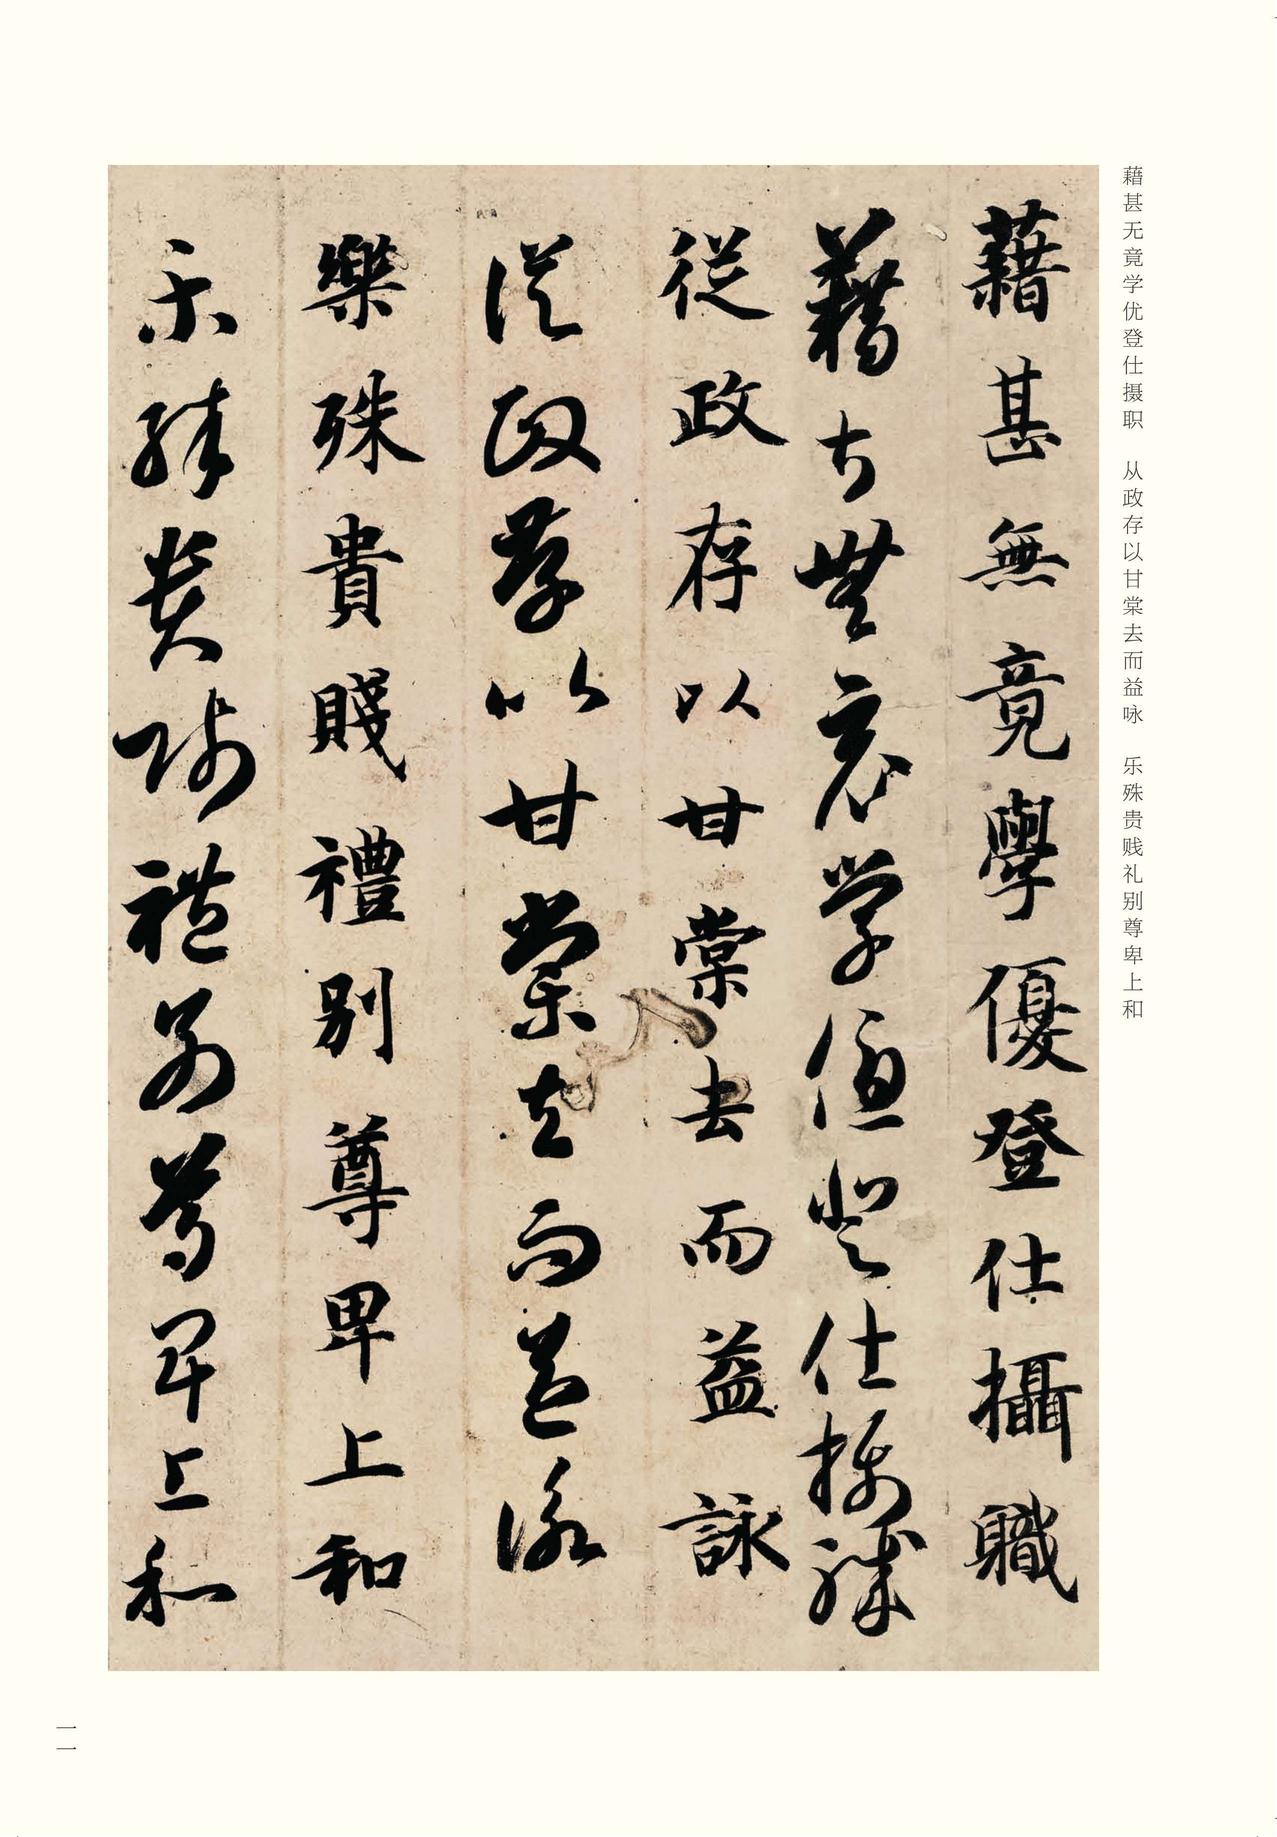 藉甚无竟学优登仕摄职　从政存以甘棠去而益咏　乐殊贵贱礼别尊卑上和
藉甚無竟學優登仕攝職
藉甚無竟學優登仕攝職
從政存以甘棠去而益詠
從政存以甘棠去而益詠
樂殊貴賤禮別尊卑上和
樂殊貴賤禮別尊卑上和
一一